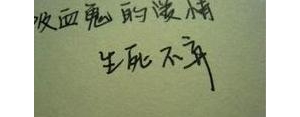 吸血鬼的深情
生死不弃